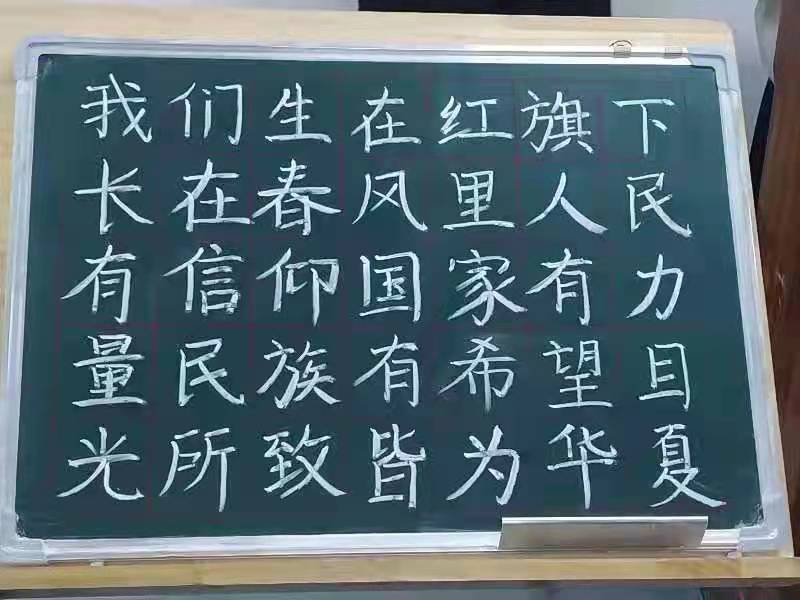 我们生在红旗下
长在春风里人民
有信仰国家有力
量民族有希望目
光所致皆为华夏